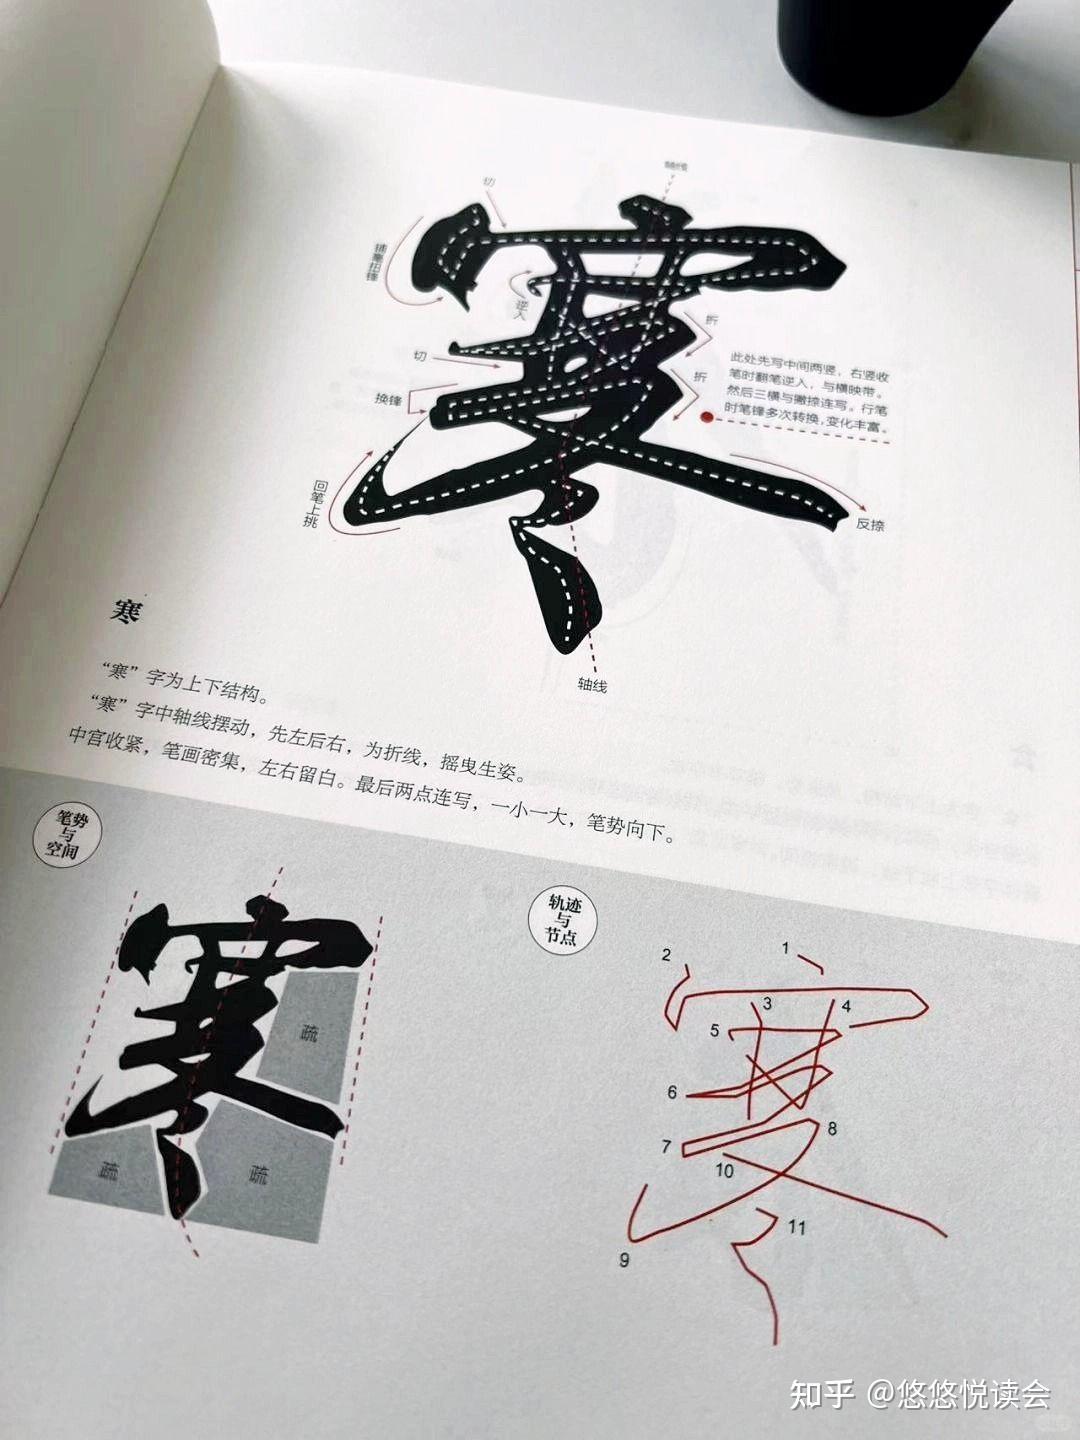 轴线
切
寒
铺毫扭锋
逆入
折
切
此处先写中间两竖，右竖收
笔时翻笔逆入，与横映带。
然后三横与撇捺连写。行笔
时笔锋多次转换，变化丰富。
折
换锋
回笔上挑
反捺
轴线
寒
“寒”字为上下结构。
“寒”字中轴线摆动，先左后右，为折线，摇曳生姿。
中宫收紧，笔画密集，左右留白。最后两点连写，一小一大，笔势向下。
笔势
与
空间
寒
疏
疏
疏
轨迹
与
节点
1
2
3
4
5
6
7
8
10
11
9
知乎 @悠悠悦读会